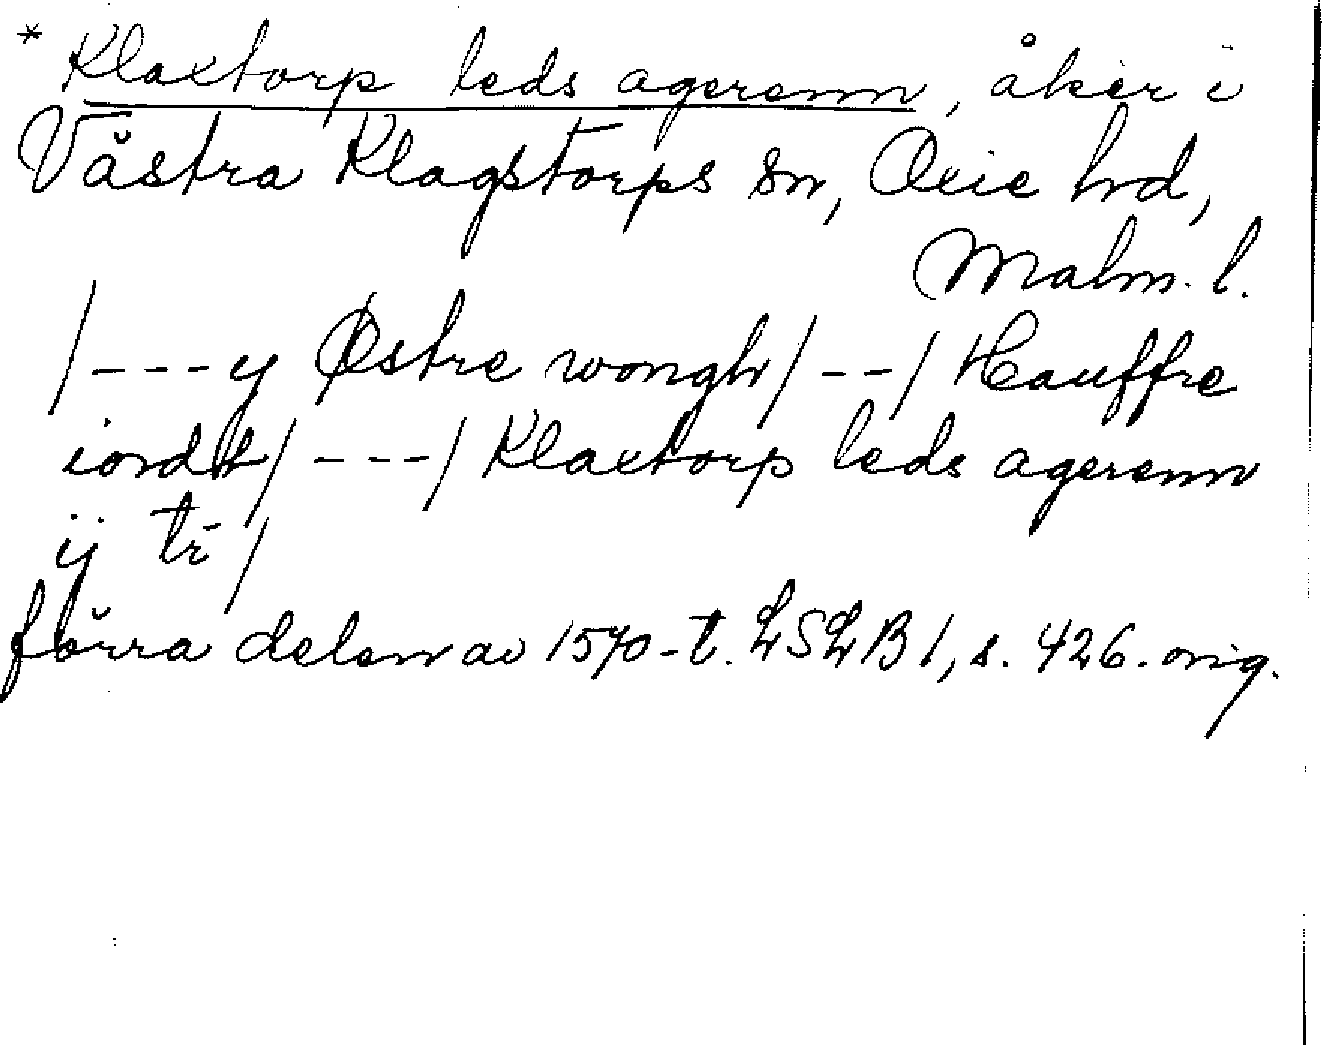 * Klaxtorp leds agerenn, åker i
Västra Klagstorps sn, Oxie hd,
Malm. l.
/---y Østre wongh/--/Hauffre
iordt/---/Klaxtorp leds agerenn
ij tr/
förra delen av 1570-t. LSLB 1, s. 426. orig.